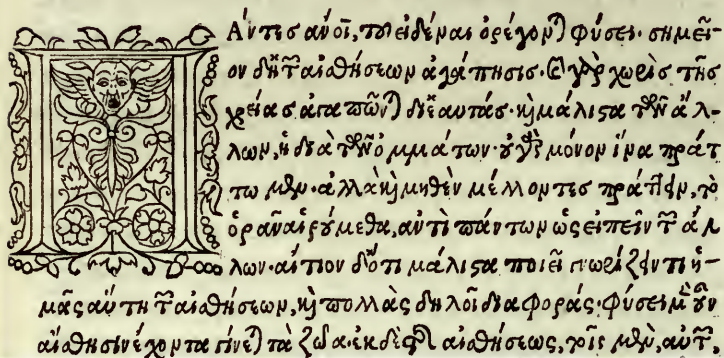 Πάντες ἄνοι, τοῦ εἰδέναι ὀρέγονται φύσει· σημεῖ-
ον δ' ἡ τῶν αἰσθήσεων ἀγάπησις· καὶ γὰρ χωρὶς τῆς
χρείας ἀγαπῶνται δι' ἑαυτάς· καὶ μάλιστα τῶν ἄλ-
λων, ἡ διὰ τῶν ὀμμάτων· οὐ γὰρ μόνον ἵνα πράτ
τωμεν· ἀλλὰ καὶ μηθὲν μέλλοντες πράττειν, τὸ
ὁρᾶν αἱρούμεθα, ἀντὶ πάντων ὡς εἰπεῖν τῶν ἄλ
λων· αἴτιον δ' ὅτι μάλιστα ποιεῖ γνωρίζειν τι ἡ-
μᾶς αὕτη τῶν αἰσθήσεων, καὶ πολλὰς δηλοῖ διαφοράς· φύσει μὲν οὖν
αἴσθησιν ἔχοντα γίνεται τὰ ζῶα· ἐκ δὲ τῆς αἰσθήσεως, τοῖς μὲν, αὐτῶν,